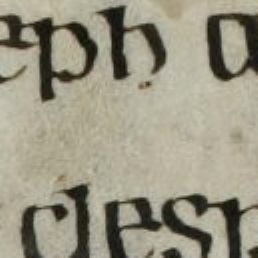 eph a
clesp